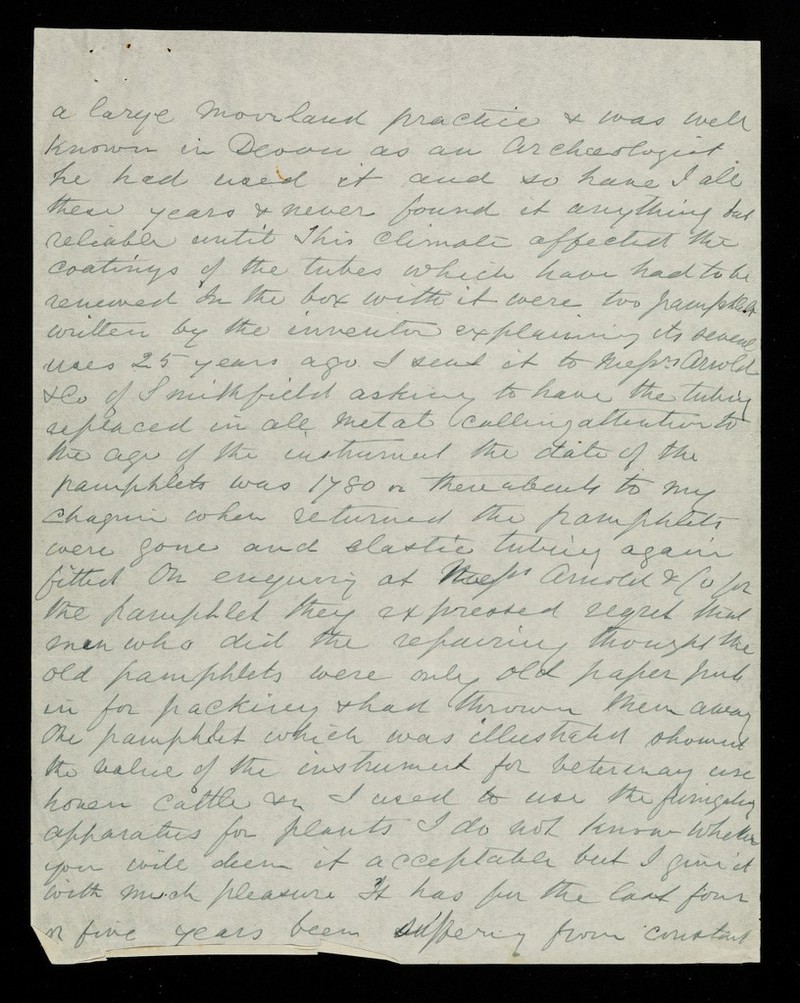 a large moorland practice & was well
known in Devon as an Archæologist
he had used it and so have I all
these years & never found it anything but
reliable until this climate affected the
coatings of the tubes which have had to be
renewed In the box with it were two pamphlets
written by the inventor explaining its several
uses 25 years ago I sent it to Messrs Arnold
& Co of Smithfield asking to have the tubing
replaced in all metal (calling attention to
the age of the instrument the date of the
pamphlets was 1780 or thereabouts to my
chagrin when returned the pamphlets
were gone and elastic tubing again
fitted On enquiry at Messrs Arnold & Co for
the pamphlet they expressed regret that
men who did the repairing thought the
old pamphlets were only old paper put
in for packing & had thrown them away
One pamphlet which was illustrated showed
the value of the instrument for veterinary use
hoven cattle &c I used to use the fumigating
apparatus for plants I do not know whether
you will deem it acceptable but I give it
with much pleasure It has for the last four
or five years been suffering from constant